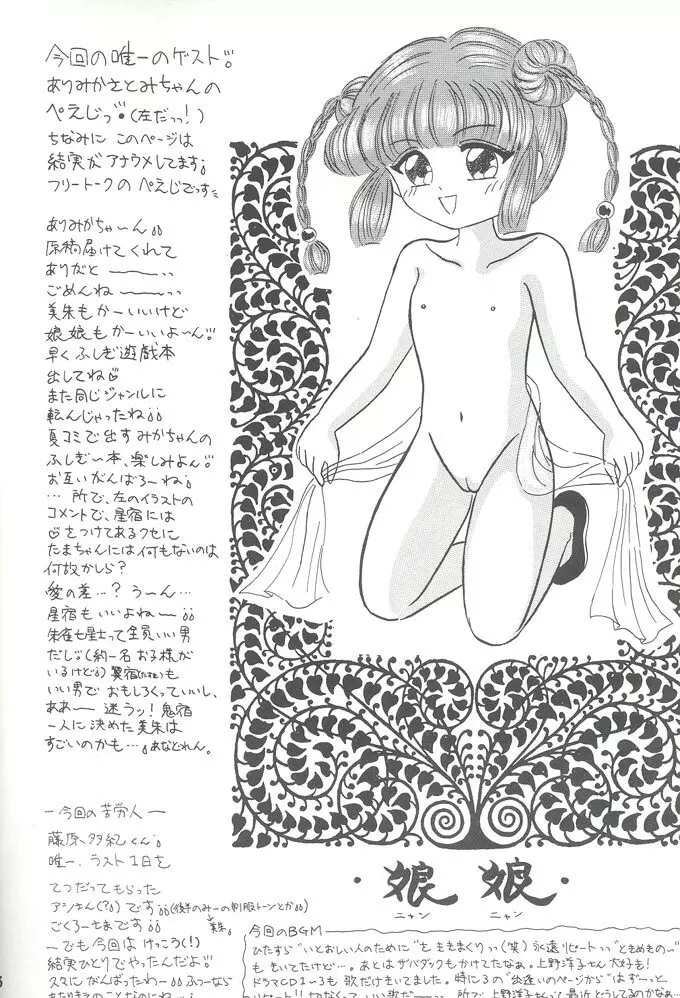 今回の唯一のゲスト!!
ありみかさとみちゃんの
ぺえじっ・(左だっっ!)
ちなみに このページは
結実が アナウメしてます。
フリートークの ぺえじでっす
ありみかちゃ〜ん。。
原稿届けてくれて
ありがと〜っっ
ごめんね〜っっ
美朱もかーいいけど
娘娘もかーいいよーん!!
早く ふしぎ遊戯本
出してね♡
また同じジャンルに
転んじゃったね。。
夏コミで出す みかちゃんの
ふしぎ〜本、楽しみよん!!
お互いがんばろーね。
… 所で、左のイラストの
コメントで、星宿には
♡をつけてあるクセに
たまちゃんには何もないのは
何故かしら?
愛の差…? う〜ん…
星宿もいいよねー。。
朱雀七星士って全員いい男
だし。(約一名 お子様が
いるけど。) 翼宿も
いい男で おもしろくっていいし、
ああ〜 迷うッ! 鬼宿
一人に決めた美朱は
すごいのかも…。あなどれん。
―今回の苦労人―
藤原多紀くん。
唯一、ラスト1日を
てつだってもらった
アシさん(?。)です。。(後半のみーの制服トーンとか。。)
美朱。
ごくろーさまです。。
―でも今回は けっこう(!)
結実ひとりでやったんだよ。
スマに がんばったわー。。ふつーなら
・娘娘・
ニャン ニャン
今回のBGM
ひたすら"いとおしい人のために"をまきまくりっっ(笑) 永遠リピートっっ"ときめきの〜"
も きいてたけど…。あとはザバダックもかけてたなぁ。上野洋子さん 大好き!
ドラマCD1〜3も 歌だけきいてました。特に3の"出逢いのページから"はず〜っと